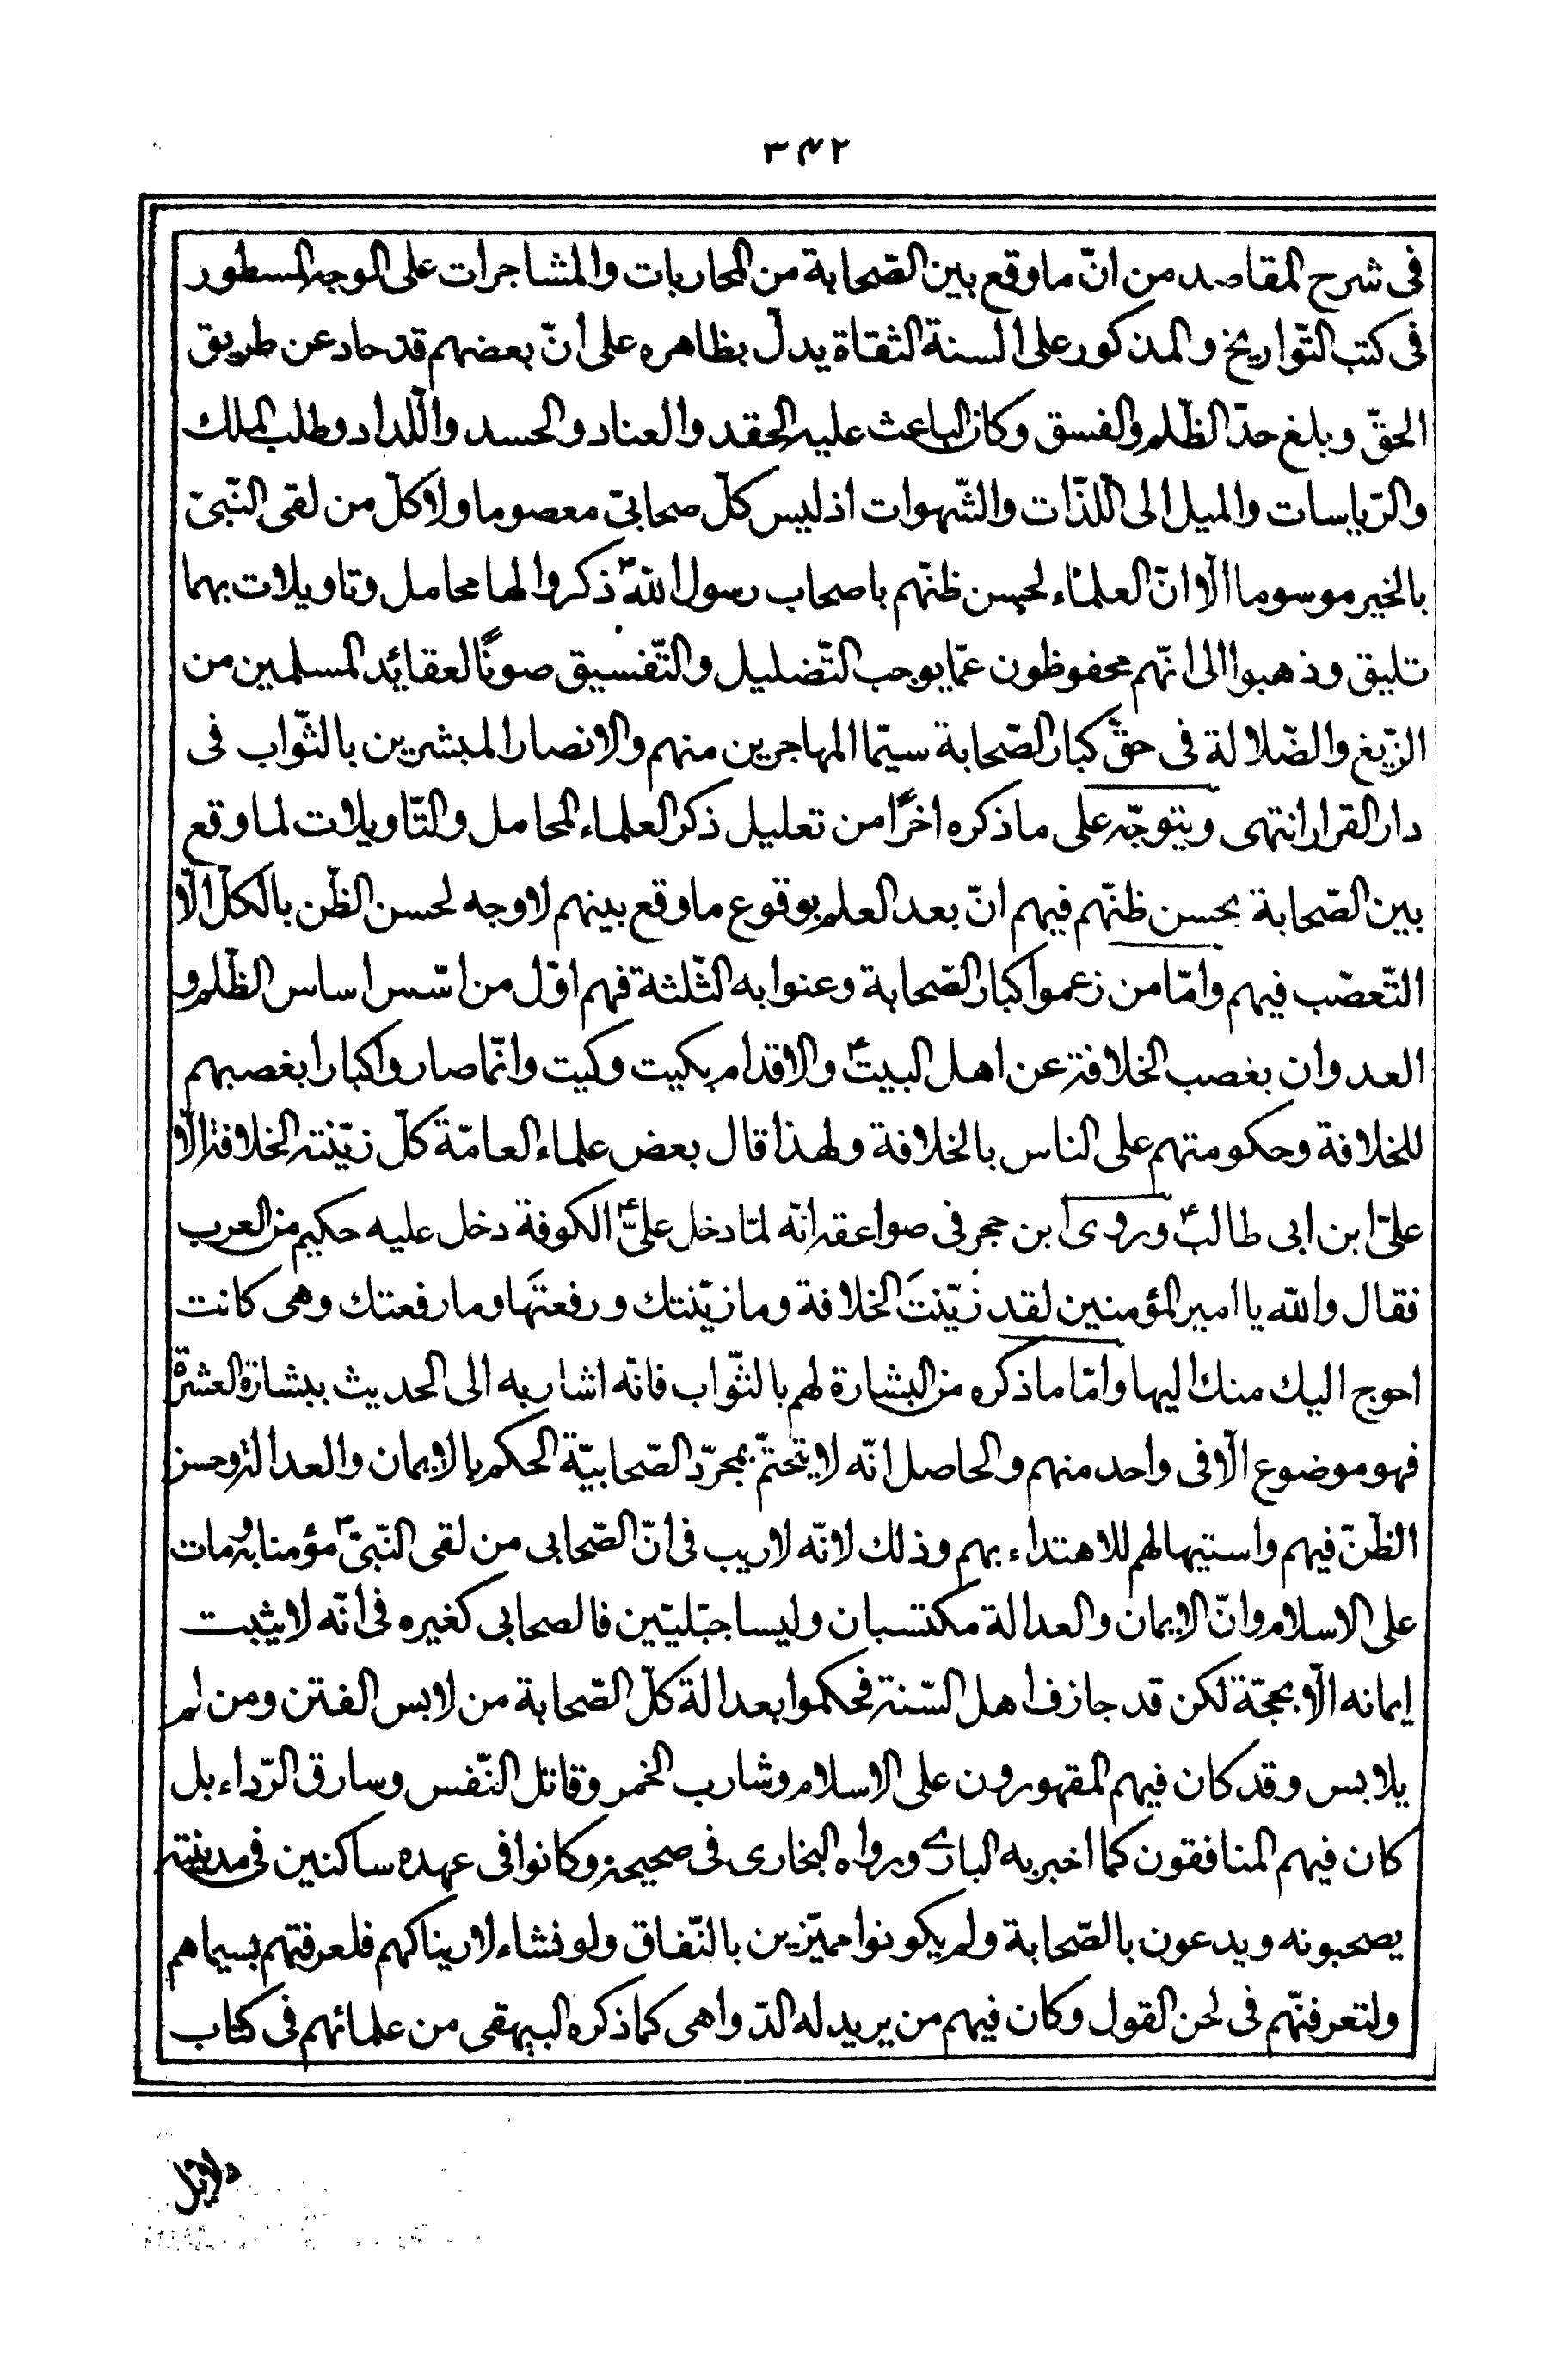 ٣٤٢
فى شرح المقاصد من انّ ما وقع بين الصّحابة من المحاربات والمشاجرات على الوجه المسطور
فى كتب التّواريخ والمذكور على السنة الثقاة يدلّ بظاهره على انّ بعضهم قد حاد عن طريق
الحقّ وبلغ حدّ الظّلم والفسق وكان الباعث عليه الحقد والعناد والحسد واللّداد وطلب الملك
والرّياسات والميل الى اللّذّات والشّهوات اذ ليس كلّ صحابىّ معصوما ولا كلّ من لقى النّبىّ
بالخير موسوما الّا انّ العلمآء لحسن ظنّهم باصحاب رسول اللّهص ذكروا لها محامل وتاويلات بهما
تليق وذهبوا الى انّهم محفوظون عمّا يوجب التّضليل والتّفسيق صونًا لعقائد المسلمين من
الزّيغ والضّلالة فى حقّ كبار الصّحابة سيّما المهاجرين منهم والانصار المبشرين بالثّواب فى
دار القرار انتهى ويتوجّه على ما ذكره اخرًا من تعليل ذكر العلماء المحامل والتّاويلات لما وقع
بين الصّحابة بحسن ظنّهم فيهم انّ بعد العلم بوقوع ما وقع بينهم لا وجه لحسن الظّن بالكلّ الّا
التّعصّب فيهم وامّا من زعموا كبار الصّحابة وعنوا به الثّلثة فهم اوّل من اسّس اساس الظّلم و
العدوان بغصب الخلافة عن اهل البيتع والاقدام بكيت وكيت وانّما صاروا كبارا بغصبهم
للخلافة وحكومتهم على الناس بالخلافة ولهذا قال بعض علماء العامّة كلّ زيّنته الخلافة الّا
علىّ ابن ابى طالبع وروى ابن حجر فى صواعقه انّه لمّا دخل علىّع الكوفة دخل عليه حكيم من العرب
فقال واللّه يا امير المؤمنين لقد زيّنتَ الخلافة وما زيّنتك ورفعتَها وما رفعتك وهى كانت
احوج اليك منك اليها وامّا ما ذكره من البشارة لهم بالثّواب فانّه اشار به الى الحديث ببشارة العشرة
فهو موضوع الّا فى واحد منهم والحاصل انّه لا يتحتّم بمجرّد الصّحابيّة الحكم بالايمان والعدالة وحسن
الظّنّ فيهم واستيهالهم للاهتداء بهم وذلك لانّه لا ريب فى انّ الصّحابى من لقى النّبىّص مؤمنا به ومات
على الاسلام وانّ الايمان والعدالة مكتسبان وليسا جبّليّين فالصحابى كغيره فى انّه لا يثبت
إيمانه الّا بحجّة لكن قد جازف اهل السّنة فحكموا بعدالة كلّ الصّحابة من لابس الفتن ومن لم
يلابس وقد كان فيهم المقهورون على الاسلام وشارب الخمر وقاتل النّفس وسارق الرّداء بل
كان فيهم المنافقون كما اخبر به البارى ورواه البخارى فى صحيحه وكانوا فى عهده ساكنين فى مدينته
يصحبونه ويدعون بالصّحابة ولم يكونوا مميّزين بالنّفاق ولو نشاء لاريناكهم فلعرفتهم بسيماهم
ولتعرفنّهم فى لحن القول وكان فيهم من يريد له الدّواهى كما ذكره البيهقى من علمائهم فى كتاب
دلائل